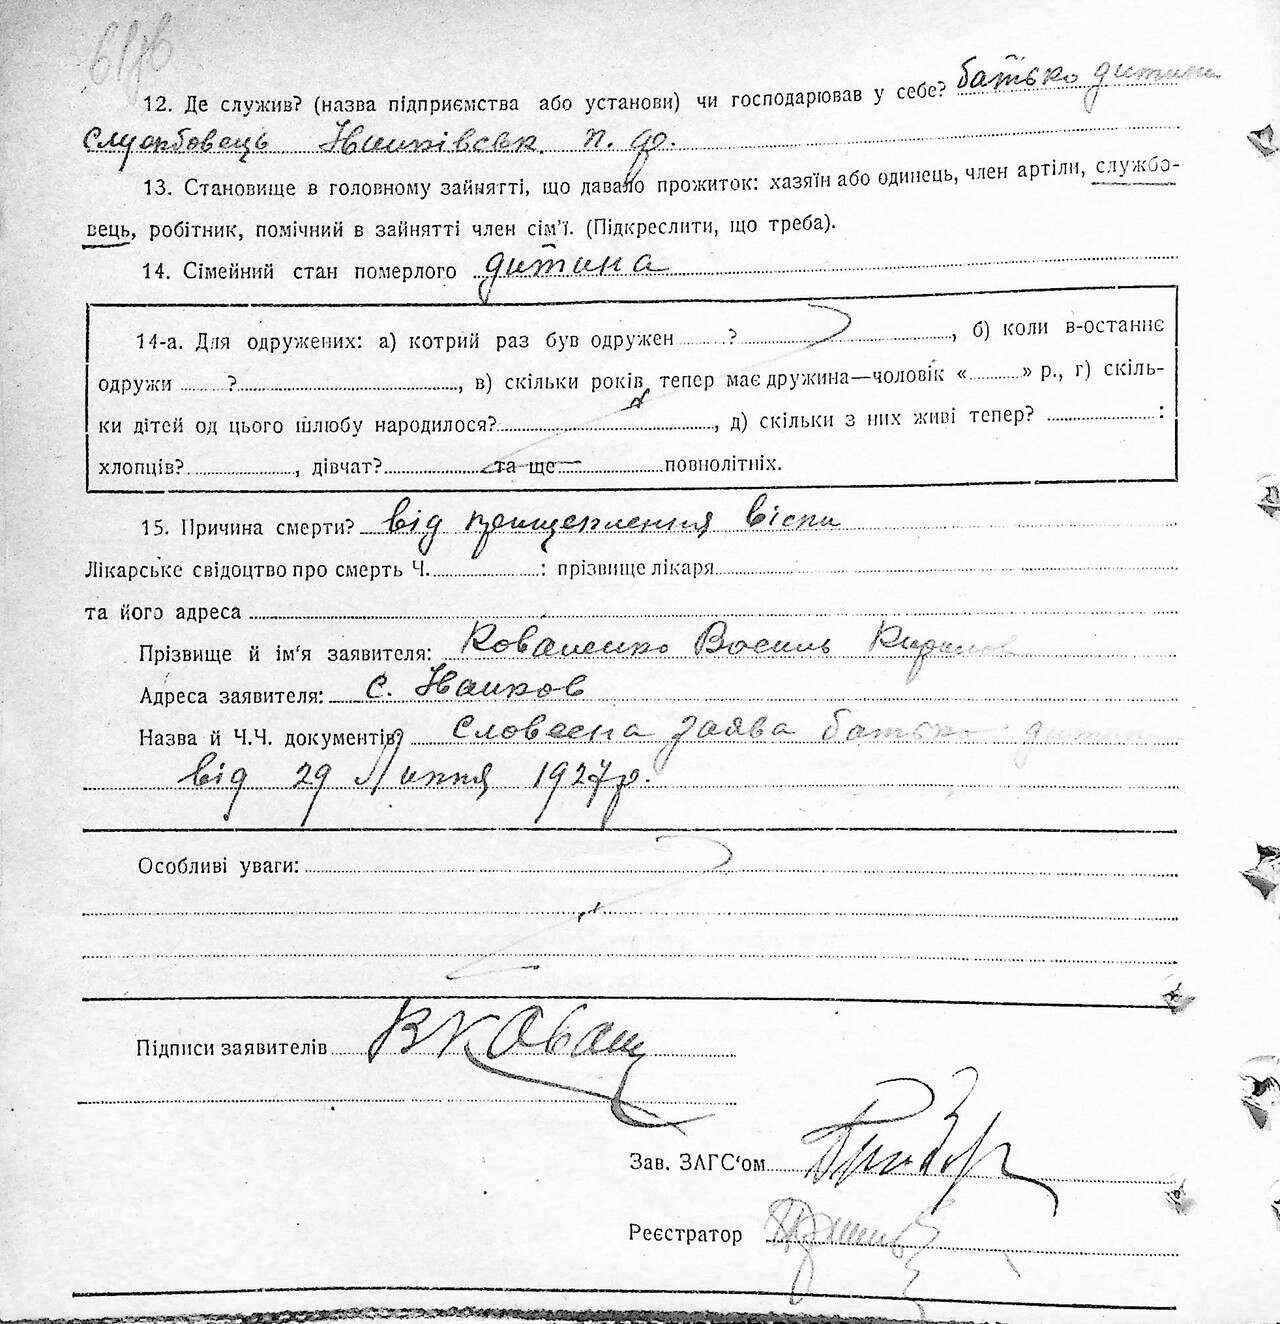 12. Де служив? (назва підприємства або установи) чи господарював у себе? батько дитини
службовець п. ф.
13. Становище в головному зайнятті, що давало прожиток: хазяїн або одинець, член артіли, службо-
вець, робітник, помічний в зайнятті член сім'ї. (Підкреслити, що треба).
14. Сімейний стан померлого дитина
14-а. Для одружених: а) котрий раз був одружен ? , б) коли в-останнє
одружи ? , в) скільки років тепер має дружина—чоловік « » р., г) скіль-
ки дітей од цього шлюбу народилося? , д) скільки з них живі тепер? :
хлопців? , дівчат? та ще повнолітніх.
15. Причина смерти? від прищеплення віспи
Лікарське свідоцтво про смерть Ч. : прізвище лікаря
та його адреса
Прізвище й ім'я заявителя: Коваленко Василь Кирилов
Адреса заявителя: с.
Назва й Ч.Ч. документів? словесна заява батько дитини
від 29 Липня 1927 р.
Особливі уваги:
Підписи заявителів
Зав. ЗАГС'ом
Реєстратор